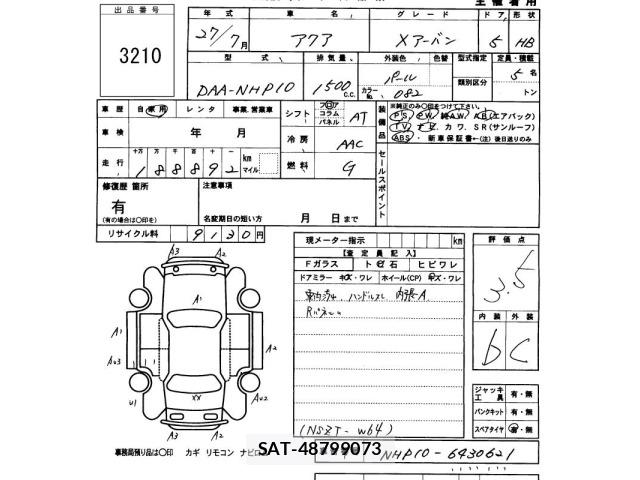 出品番号
3210
年式 車名 グレード ドア 形状
27/7月 アクア Xアーバン 5 HB
型式 排気量 外装色 色替 型式指定 定員・積載
DAA-NHP10 1500c.c. パール 5名
カラーNo. 082 類別区分 トン
車歴 自家用 レンタ 事業.営業車
車検 年 月
走行 十万 万 千 百 十 一 km マイル
188892
シフト フロア コラム パネル AT
冷房 AAC
燃料 G
装備品
※純正のみ○印をつけて下さい.
PS. PW. 純A.W. AB(エアバック)
TV. ナビ. カワ. SR(サンルーフ)
ABS. ・新車保証書←(注)後日送りのみ
セールスポイント
修復歴 箇所
有
(有の場合は○印を)
注意事項
名変期日の短い方 月 日まで
リサイクル料 9130円
現メーター指示 km
【査定員記入】
Fガラス トビ石 ヒビワレ
ドアミラー キズ・ワレ ホイール(CP) キズ・ワレ
車内汚れ、ハンドルスレ 内張-A
(NSZT-W64)
評価点
3.5
内装 外装
b C
ジャッキ 工具 有・無
パンクキット 有・無
スペアタイヤ 有・無
A3 A2
A1
A1 A2
AU3
U1 XX AU2
A3 A2
事務局預り品は○印 カギ リモコン ナビロム
SAT-48799073
NHP10-6430621